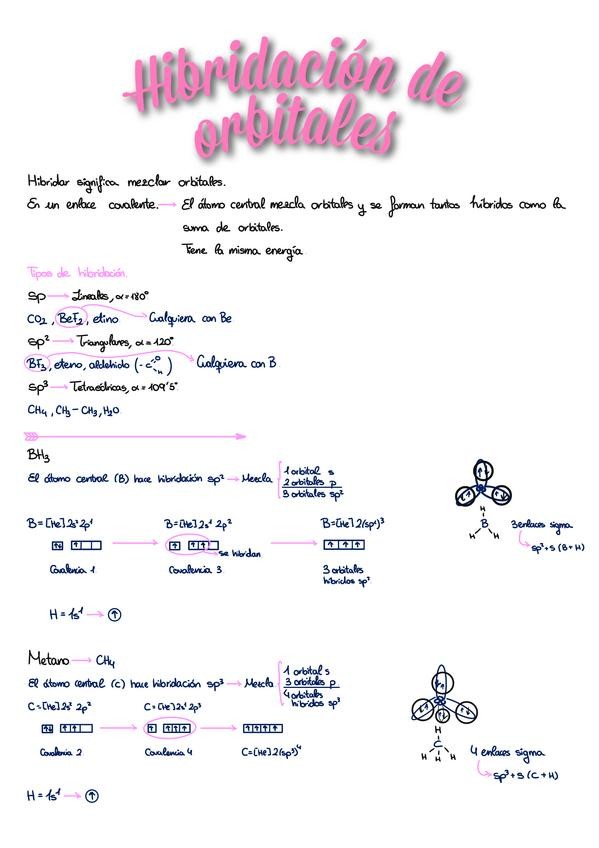 Hibridación de
orbitales
Hibridar significa mezclar orbitales.
En un enlace covalente. → El átomo central mezcla orbitales y se forman tantos híbridos como la
suma de orbitales.
Tiene la misma energía
Tipos de hibridación.
sp → Lineales, α = 180°
CO2, BeF2, etino → Cualquiera con Be
sp² → Triangulares, α = 120°
BF3, eteno, aldehido (-C O H) → Cualquiera con B
sp³ → Tetraédricas, α = 109'5°
CH4, CH3 - CH3, H2O
BH3
El átomo central (B) hace hibridación sp² → Mezcla
1 orbital s
2 orbitales p
3 orbitales sp²
B = [He] 2s² 2p¹
B = [He] 2s¹ 2p²
B = [He] 2(sp²)³
se hibridan
Covalencia 1
Covalencia 3
3 orbitales
híbridos sp²
H
B
H H
3 enlaces sigma
sp² + s (B + H)
H = 1s¹ →
Metano → CH4
El átomo central (C) hace hibridación sp³ → Mezcla
1 orbital s
3 orbitales p
4 orbitales
híbridos sp³
C = [He] 2s² 2p²
C = [He] 2s¹ 2p³
Covalencia 2
Covalencia 4
C = [He] 2(sp³)⁴
H
C
H H H
4 enlaces sigma
sp³ + s (C + H)
H = 1s¹ →